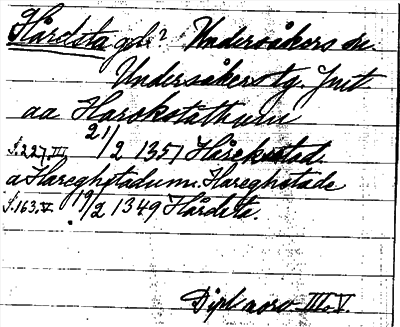 Hårdsta gd.? Undersåkers sn.
Undersåkers tg. Jmtl
aa Harokstathum
S. 227. III 21/2 1351 Hårekstad.
a Hareghstadum. Hareghstade
S. 163. V 19/2 1349 Hårdsta.
Dipl norv III. V.